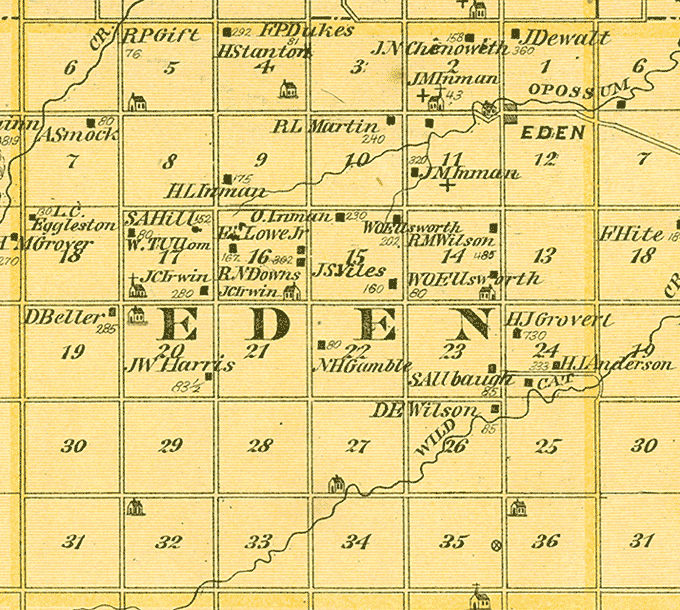 CR.
R.P.Gift
76
292
F.P.Dukes
81
H.Stanton
J.N.Chenoweth
158
J.Dewalt
360
6
5
4
3
2
1
6
J.M.Inman
43
OPOSSUM
EDEN
819
A.Smock
80
R.L.Martin
240
7
8
9
10
11
12
7
320
J.M.Inman
175
H.L.Inman
80
L.C.
Eggleston
S.A.Hill
152
O.Inman
230
80
W.T.Ullom
E.Lowe Jr
W.O.Ellsworth
202
R.M.Wilson
485
F.Hite
McGroyer
270
18
17
16
15
14
13
18
167
302
J.C.Irwin
280
R.N.Downs
J.C.Irwin
J.S.Viles
160
W.O.Ellsworth
80
CR.
D.Beller
285
EDEN
H.J.Grovert
730
19
20
21
22
23
24
19
80
J.W.Harris
83½
N.H.Gamble
S.Allbaugh
85
333
H.J.Anderson
CAT
D.E.Wilson
85
WILD
30
29
28
27
26
25
30
31
32
33
34
35
36
31